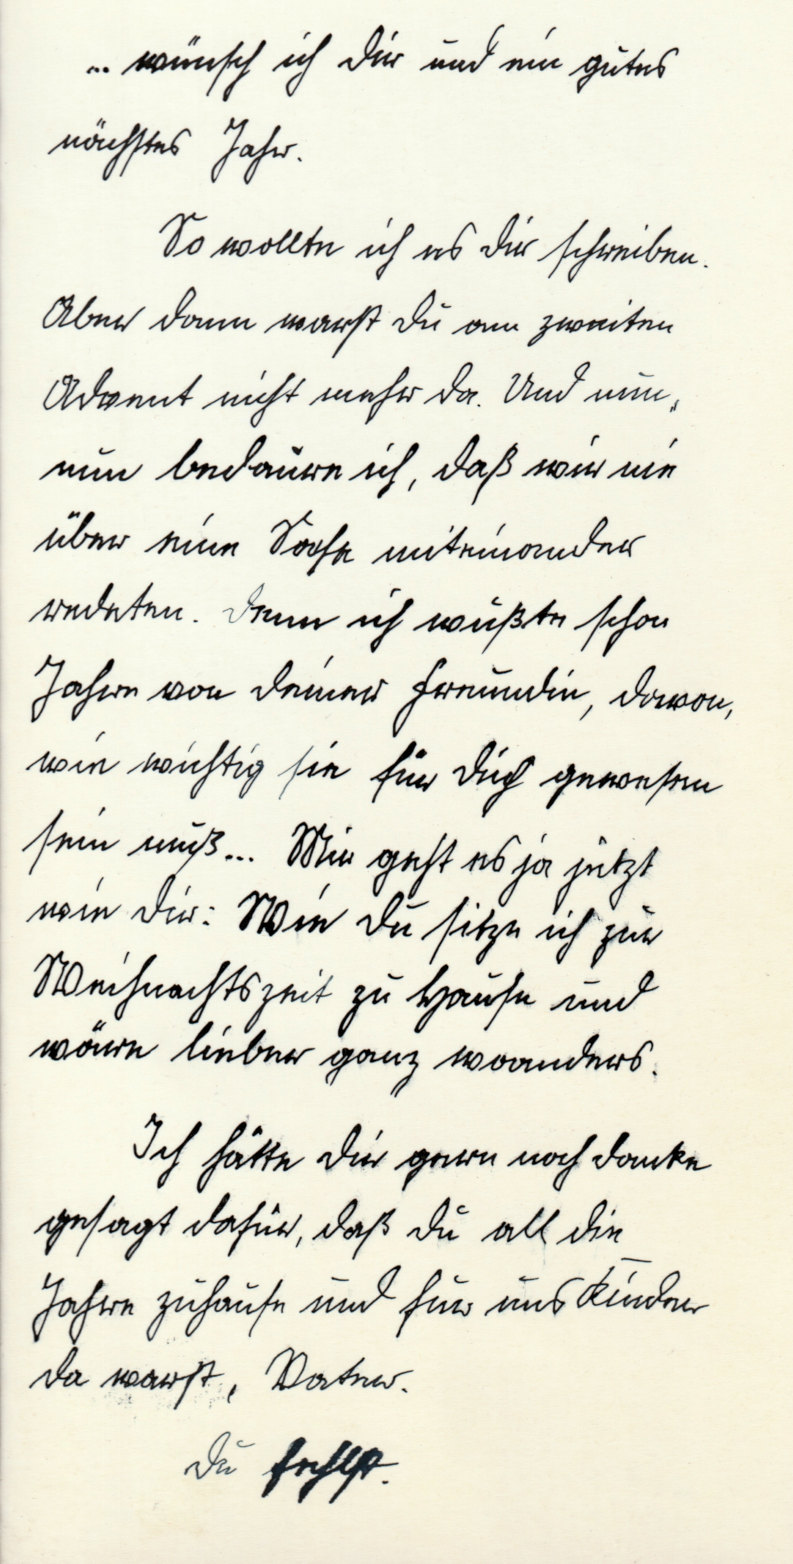 ... wünsch ich dir und ein gutes
nächstes Jahr.
So wollte ich es dir schreiben.
Aber dann warst du am zweiten
Advent nicht mehr da. Und nun,
nun bedaure ich, daß wir nie
über eine Sache miteinander
redeten. Denn ich wußte schon
Jahre von deiner Freundin, davon,
wie wichtig sie für dich gewesen
sein muß... Mir geht es ja jetzt
wie dir: Wie du sitze ich zur
Weihnachtszeit zu Hause und
wäre lieber ganz woanders.
Ich hätte dir gern noch danke
gesagt dafür, daß du all die
Jahre zuhause und für uns Kinder
da warst, Vater.
Du fehlst.